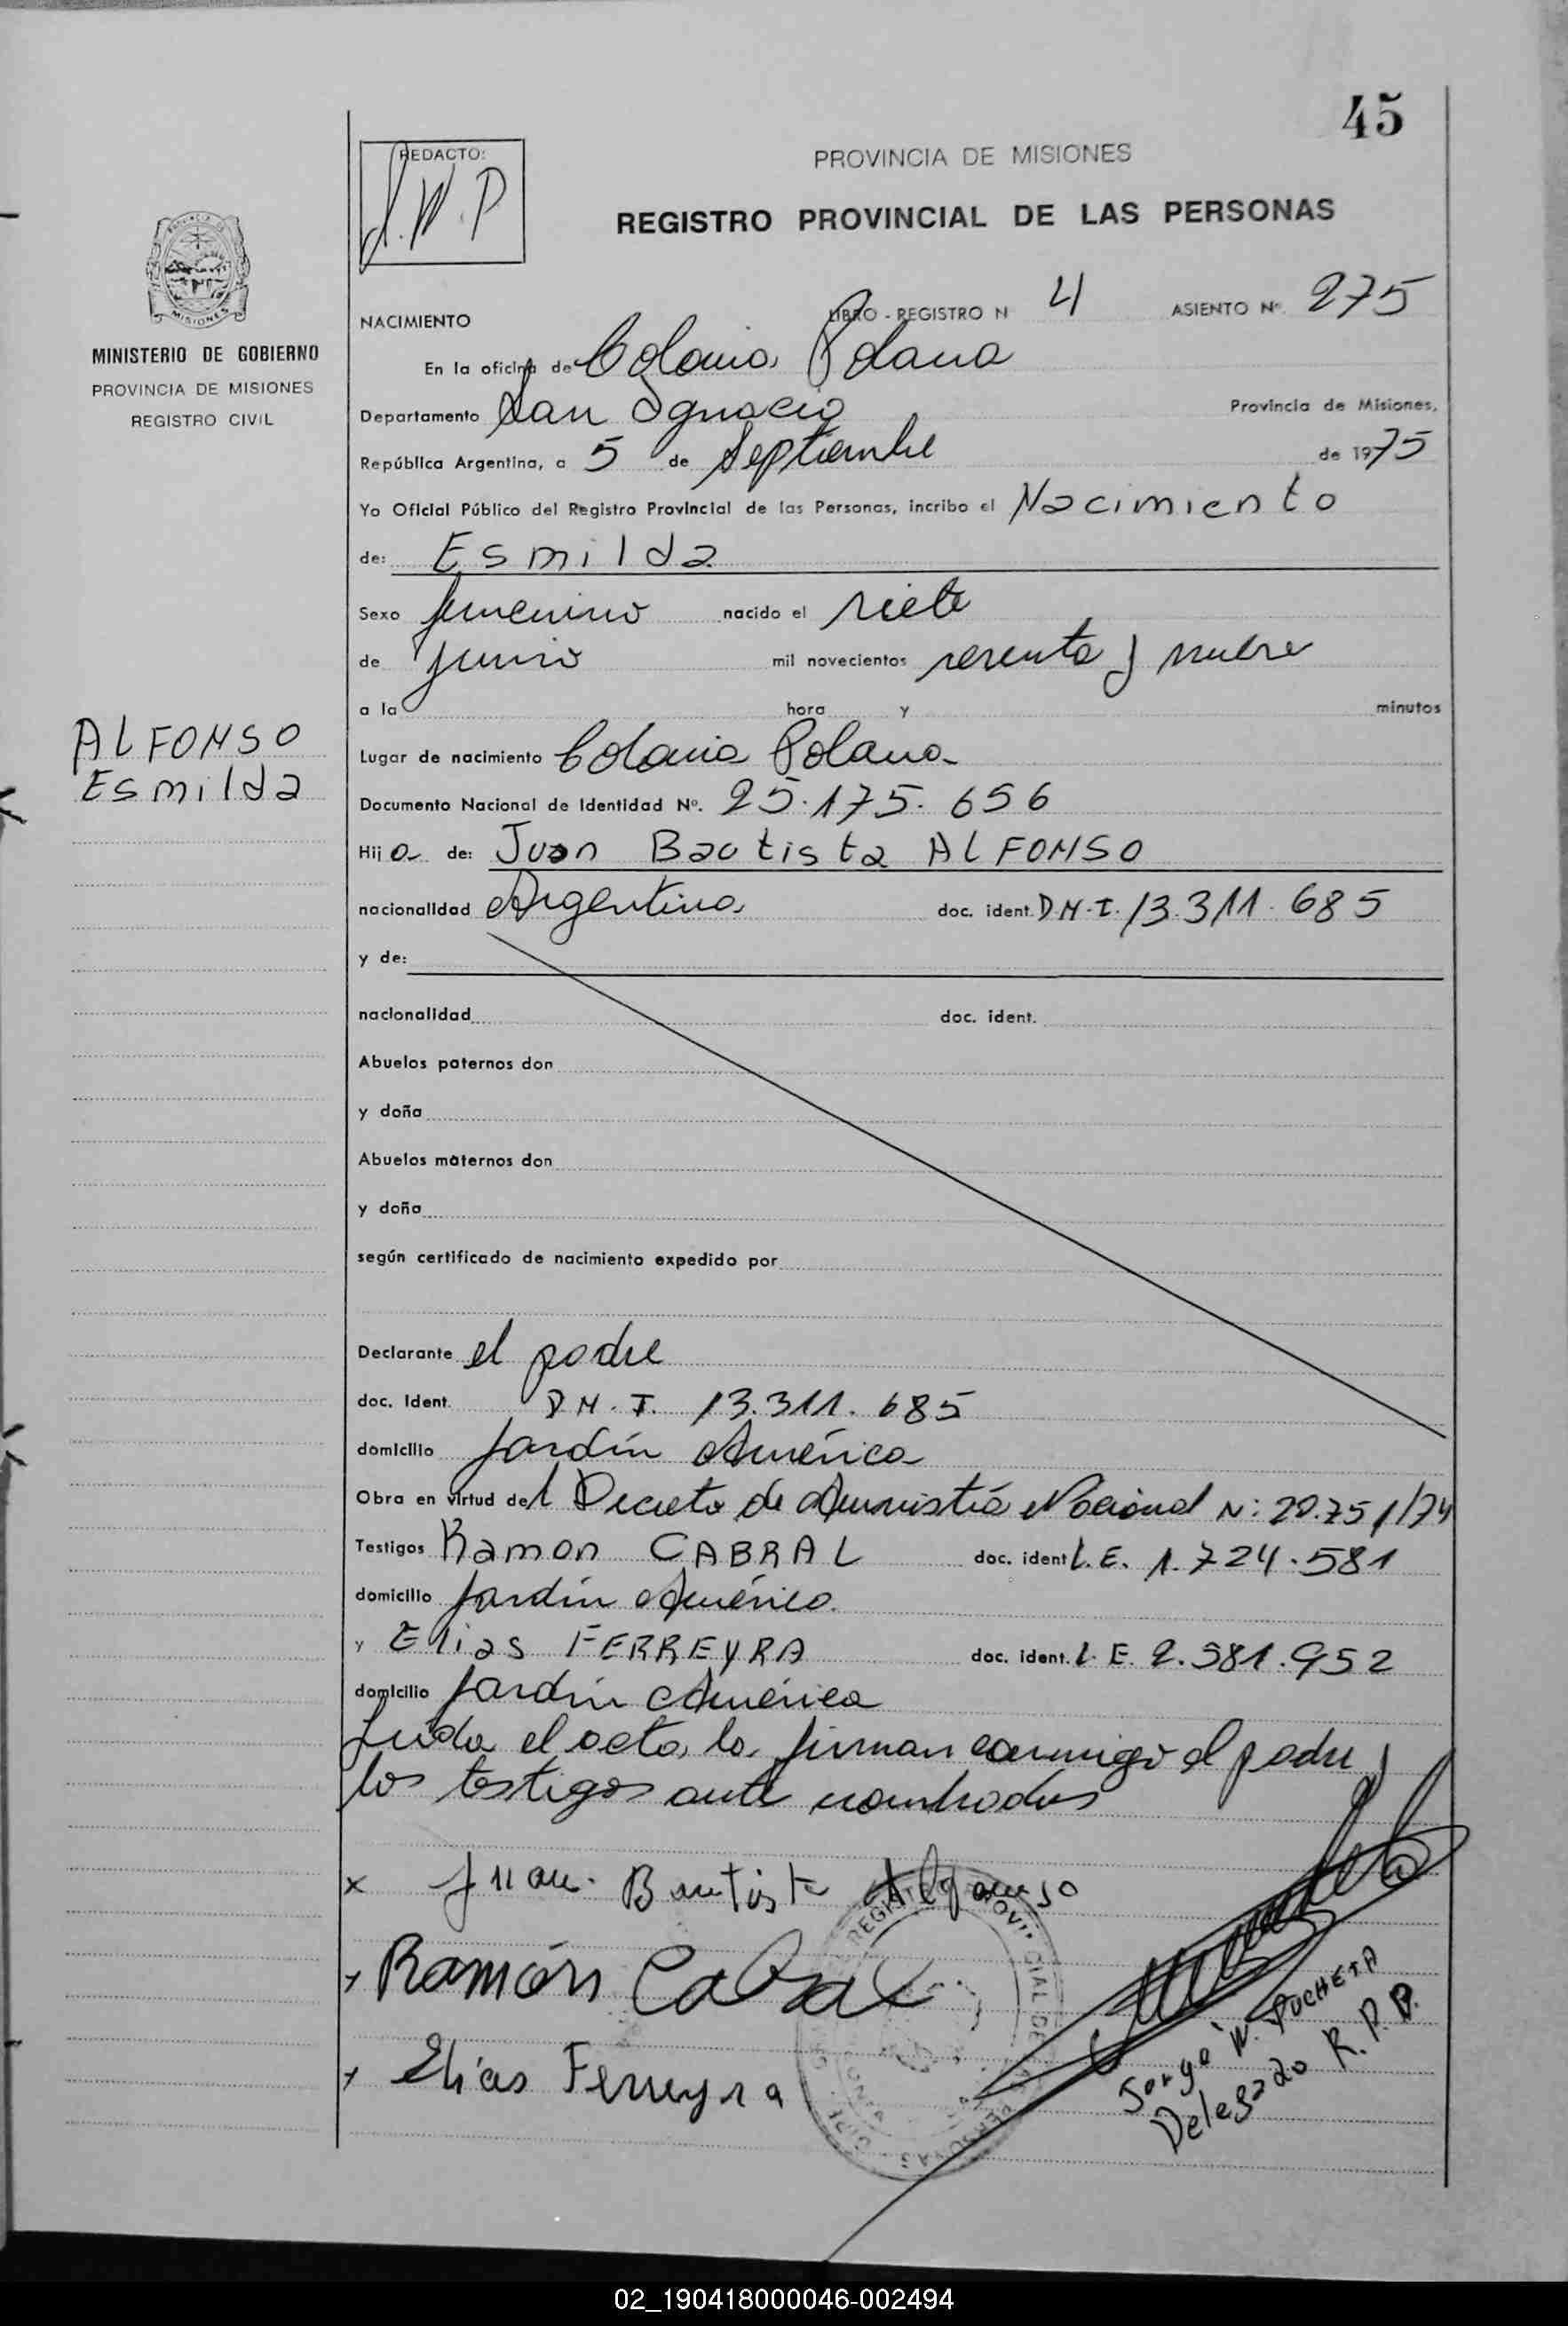 45
REDACTO:
J.W.P
PROVINCIA DE MISIONES
REGISTRO PROVINCIAL DE LAS PERSONAS
MISIONES
MINISTERIO DE GOBIERNO
PROVINCIA DE MISIONES
REGISTRO CIVIL
NACIMIENTO LIBRO - REGISTRO N 4 ASIENTO Nº 275
En la oficina de Colonia Polana
Departamento San Ignacio Provincia de Misiones,
República Argentina, a 5 de Septiembre de 1975
Yo Oficial Público del Registro Provincial de las Personas, incribo el Nacimiento
de: Esmilda
Sexo femenino nacido el siete
de junio mil novecientos sesenta y nueve
a la hora y minutos
ALFONSO
Esmilda
Lugar de nacimiento Colonia Polana
Documento Nacional de Identidad Nº. 25.175.656
Hija de: Juan Bautista ALFONSO
nacionalidad Argentina doc. ident. D.N.I. 13.311.685
y de:
nacionalidad doc. ident.
Abuelos paternos don
y doña
Abuelos maternos don
y doña
según certificado de nacimiento expedido por
Declarante el padre
doc. Ident. D.N.I. 13.311.685
domicilio Jardín América
Obra en virtud del Decreto de Amnistía Nacional N: 20.751/74
Testigos Ramon CABRAL doc. ident L.E. 1.724.581
domicilio Jardín América
y Elias FERREYRA doc. ident. L.E. 2.581.952
domicilio Jardín América
Leída el acta, la firman conmigo el padre y
los testigos ante nombrados
x Juan Bautista Alfonso
Ramón Cabral
Elías Ferreyra
Jorge W. PUCHETA
Delegado R.P.P.
02_190418000046-002494